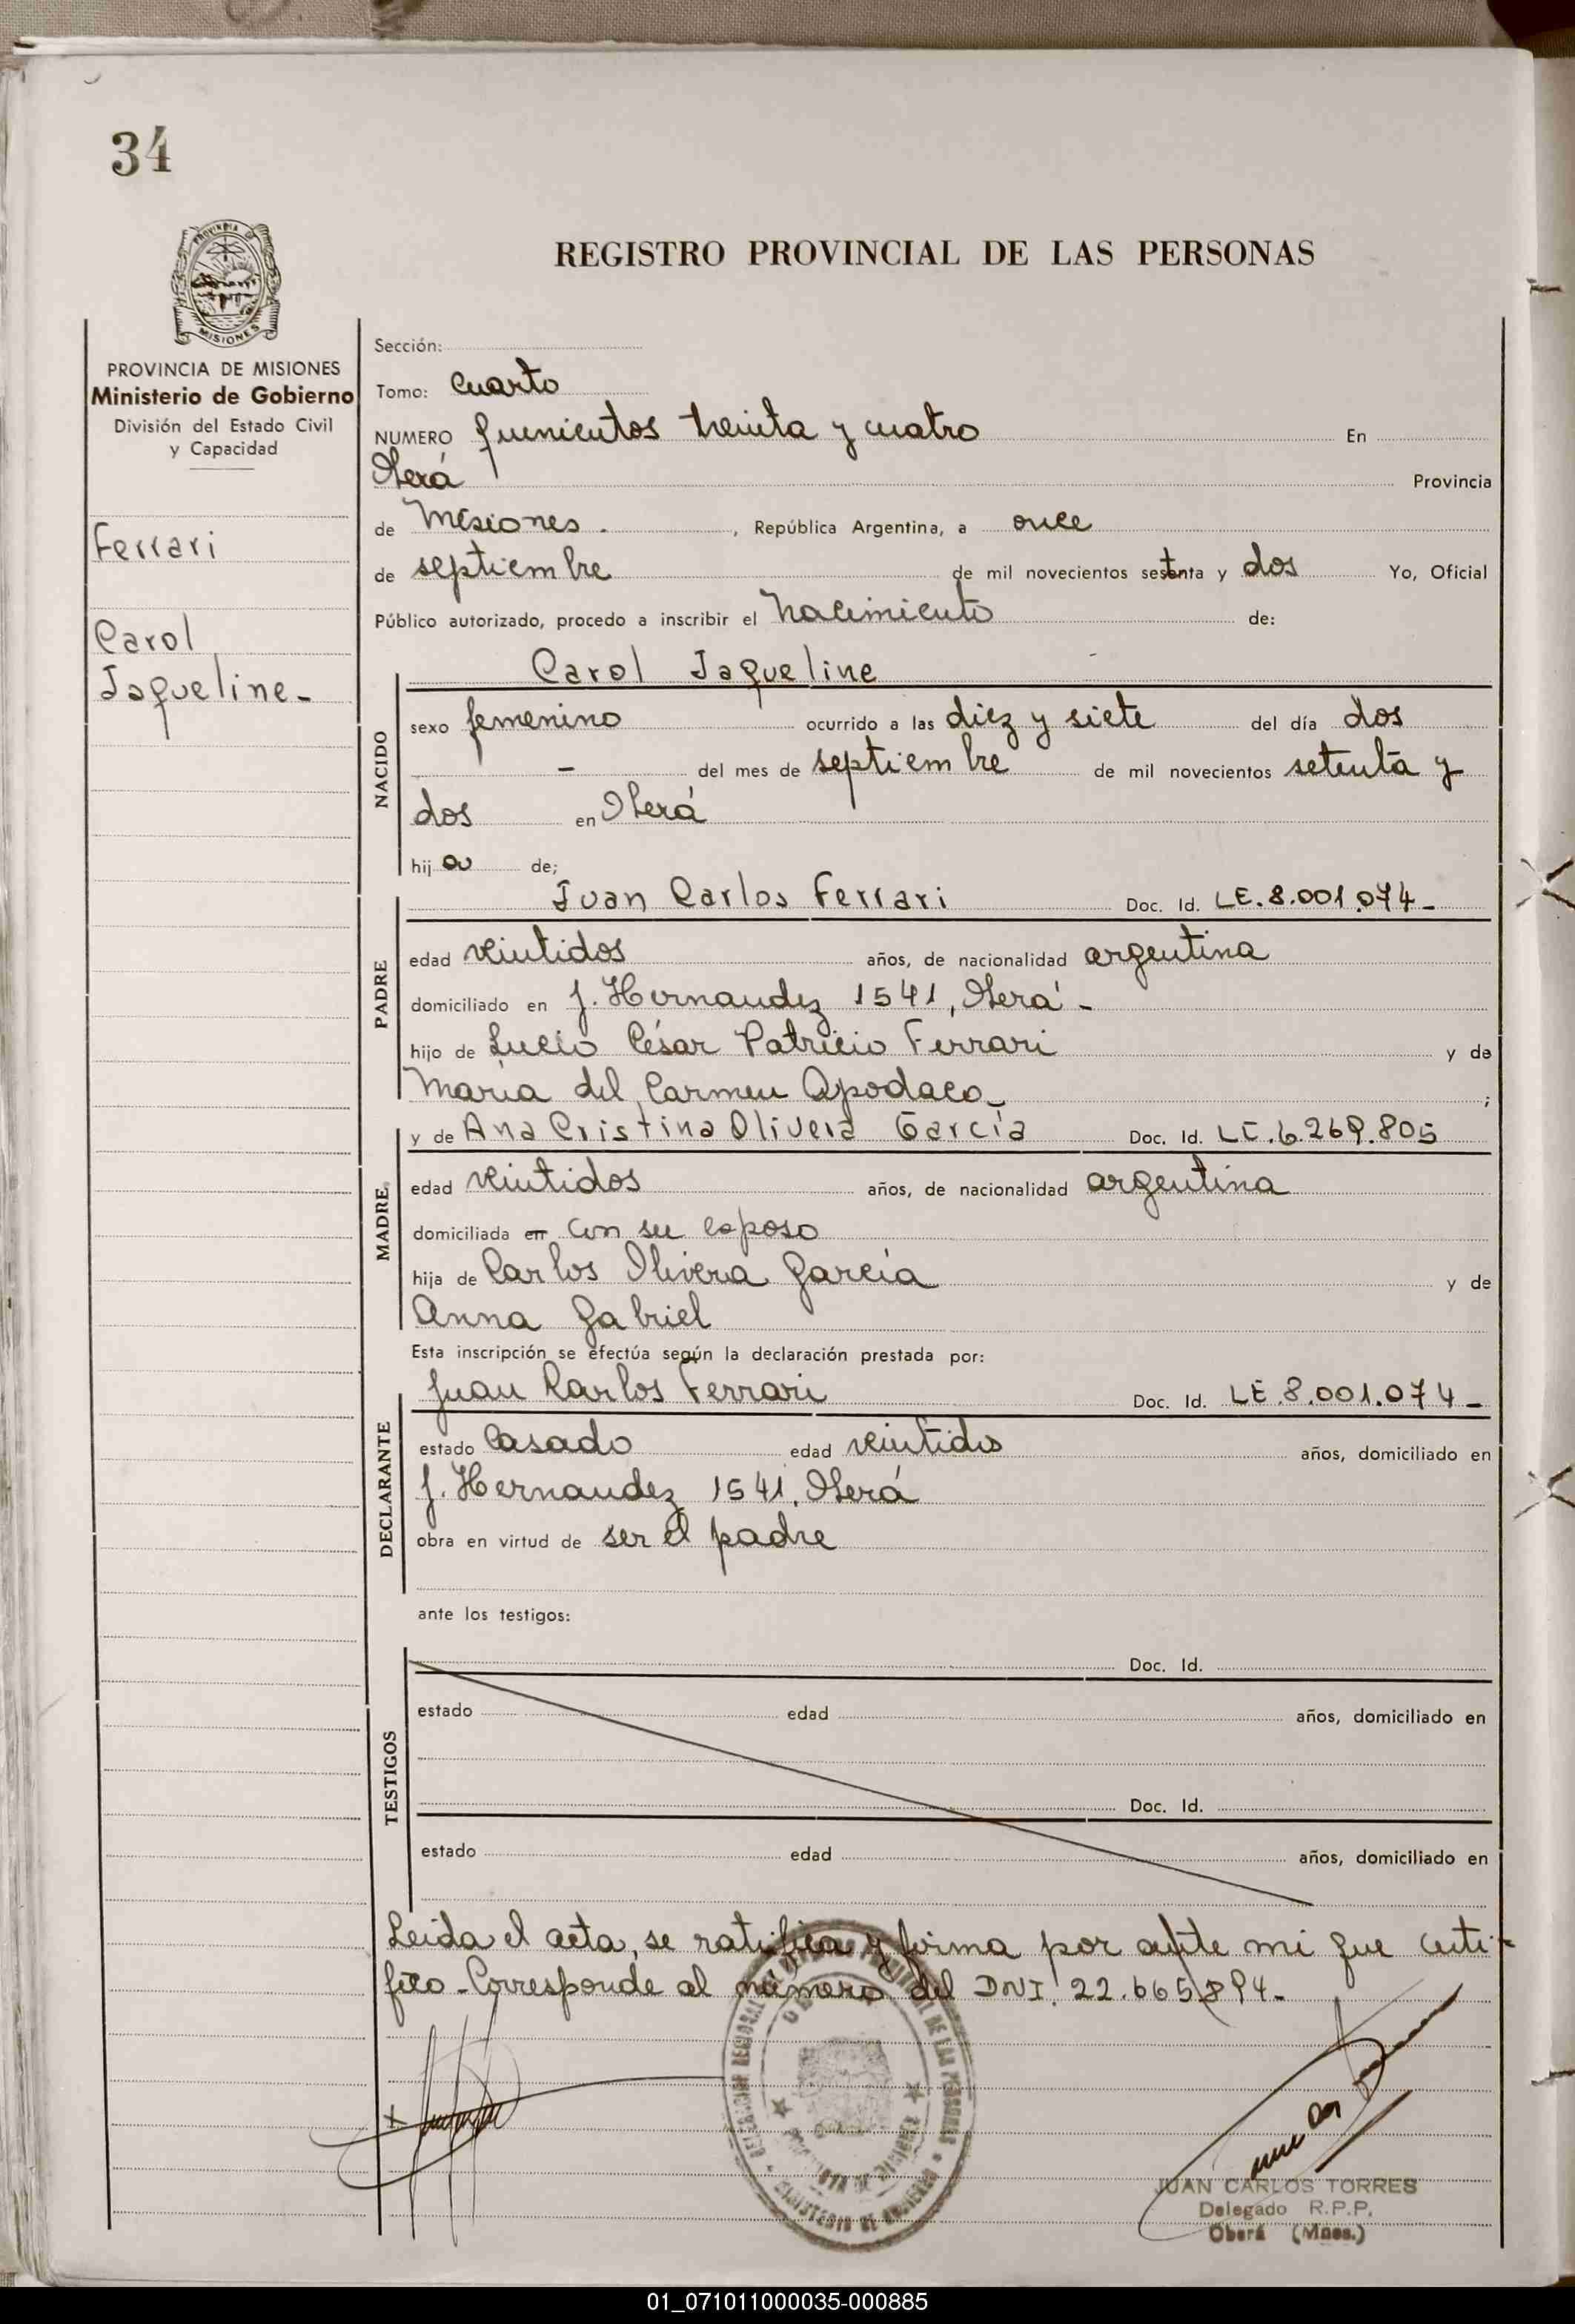 34
REGISTRO PROVINCIAL DE LAS PERSONAS
MISIONES
PROVINCIA DE MISIONES
Ministerio de Gobierno
División del Estado Civil
y Capacidad
Ferrari
Carol
Jaqueline-
Sección:
Tomo: cuarto
NUMERO quinientos treinta y cuatro En
Oberá Provincia
de Misiones. , República Argentina, a once
de septiembre de mil novecientos setenta y dos Yo, Oficial
Público autorizado, procedo a inscribir el nacimiento de:
Carol Jaqueline
NACIDO
sexo femenino ocurrido a las diez y siete del día dos
- del mes de septiembre de mil novecientos setenta y
dos en Oberá
hija de;
Juan Carlos Ferrari Doc. Id. LE.8.001.074-
PADRE
edad veintidos años, de nacionalidad argentina
domiciliado en J. Hernandez 1541, Oberá-
hijo de Lucio César Patricio Ferrari y de
María del Carmen Apodaca- ;
y de Ana Cristina Olivera García Doc. Id. LC.6.269.805
MADRE
edad veintidos años, de nacionalidad argentina
domiciliada en con su esposo
hija de Carlos Olivera García y de
Anna Gabriel
Esta inscripción se efectúa según la declaración prestada por:
Juan Carlos Ferrari Doc. Id. LE.8.001.074-
DECLARANTE
estado casado edad veintidos años, domiciliado en
J. Hernandez 1541, Oberá
obra en virtud de ser el padre
ante los testigos:
Doc. Id.
TESTIGOS
estado edad años, domiciliado en
Doc. Id.
estado edad años, domiciliado en
Leida el acta, se ratifica y firma por ante mi que certi-
fico-Corresponde al número del DNI. 22.665.894-
JUAN CARLOS TORRES
Delegado R.P.P.
Oberá (Mnes.)
01_071011000035-000885